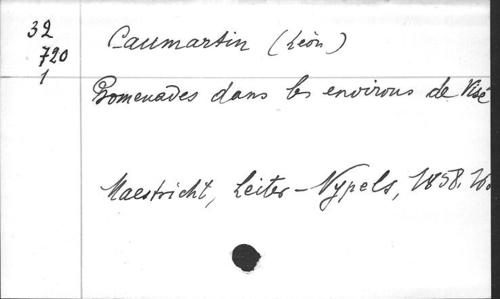 32
720
1
Caumartin (Léon)
Promenades dans les environs de Visé
Maestricht, Leiter-Nypels, 1858.